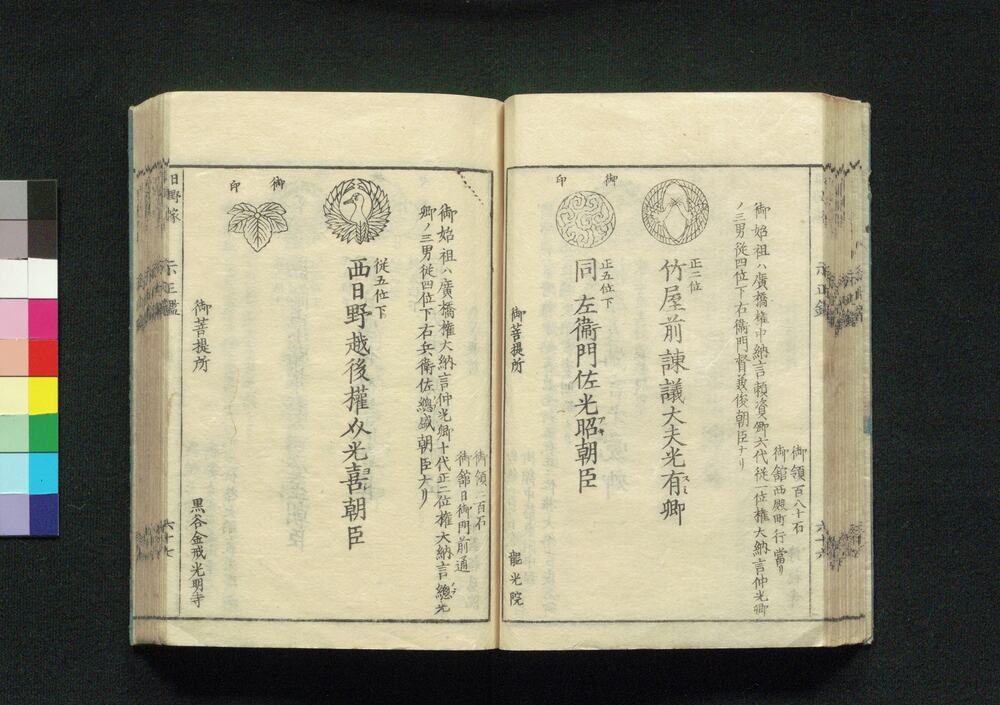 御領百八十石
御舘西殿町行當リ
御始祖ハ廣橋權中納言頼資卿六代従一位權大納言仲光卿
ノ三男従四位下右衞門督兼俊朝臣ナリ
正三位
竹屋前諫議大夫光有卿
御印
正五位下
同左衞門佐光昭朝臣
御菩提所
龍光院
六十六
御領二百石
御舘日御門前通
御始祖ハ廣橋權大納言仲光卿十代正二位權大納言總光
卿ノ三男従四位下右兵衛佐總盛朝臣ナリ
従五位下
西日野越後權介光喜朝臣
御印
御菩提所
黒谷金戒光明寺
日野家
六十七